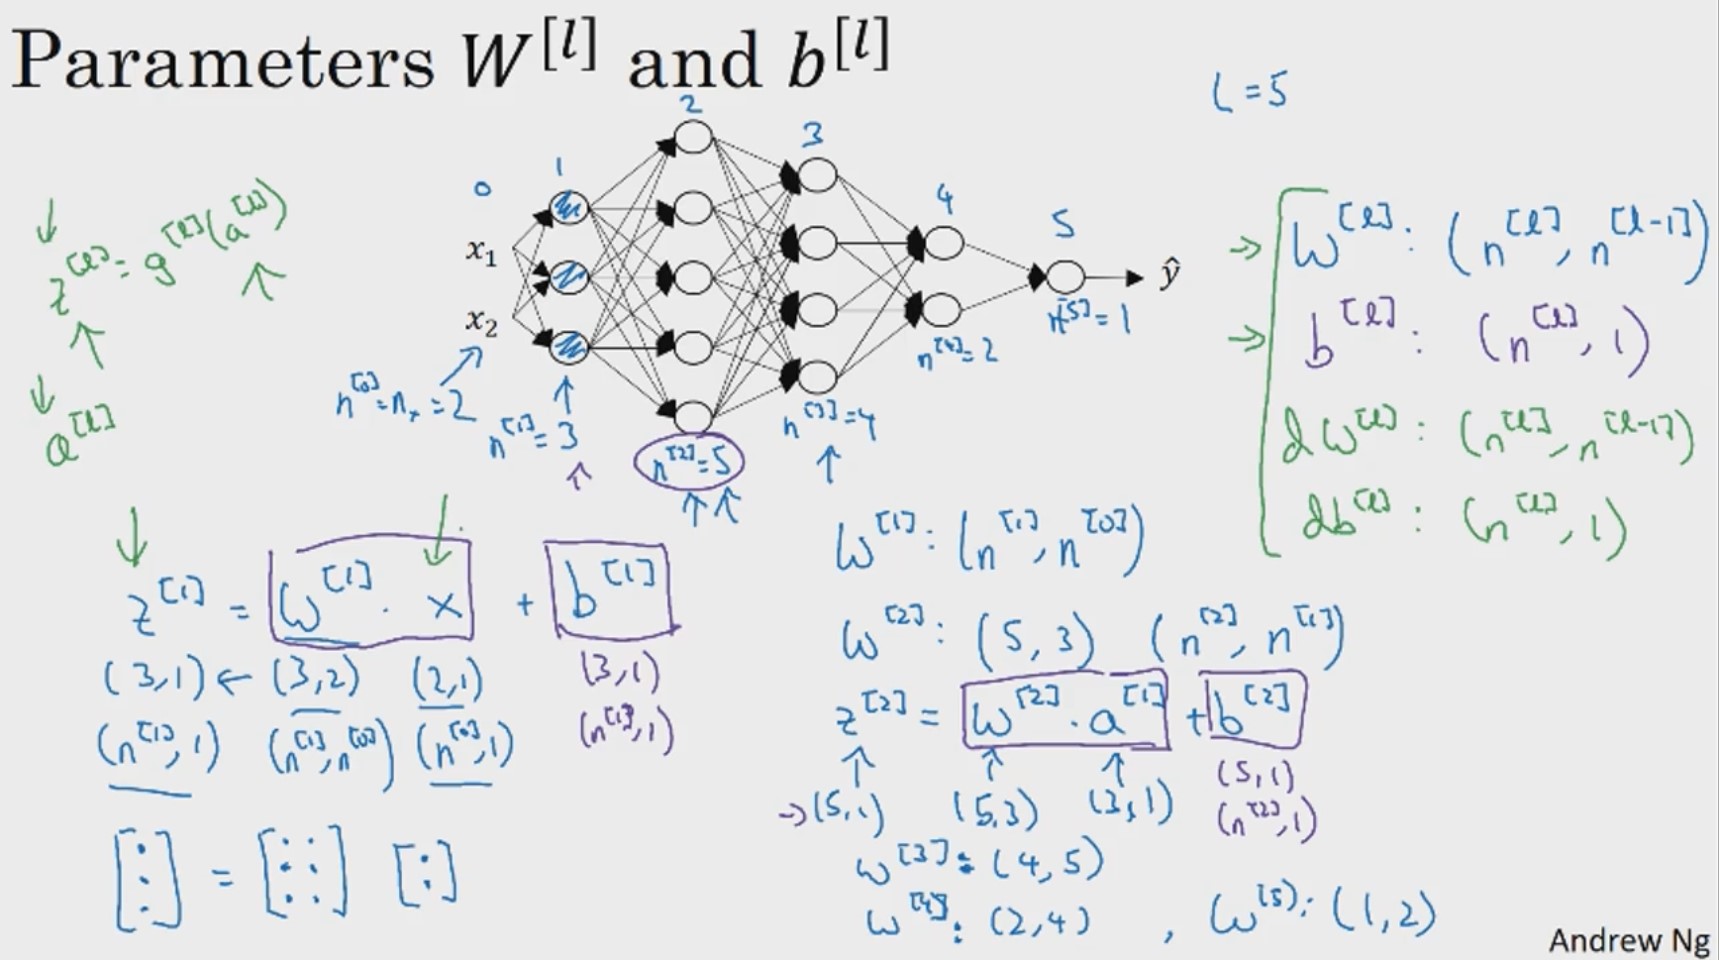 Parameters W^[l] and b^[l]
L = 5
0 1 2 3 4 5
x₁
x₂
ŷ
n^[0] = n_x = 2
n^[1] = 3
n^[2] = 5
n^[3] = 4
n^[4] = 2
n^[5] = 1
z^[l] = g^[l](a^[l])
a^[l]
W^[l] : (n^[l], n^[l-1])
b^[l] : (n^[l], 1)
dW^[l] : (n^[l], n^[l-1])
db^[l] : (n^[l], 1)
z^[1] = W^[1] · x + b^[1]
(3,1) ← (3,2) (2,1) (3,1)
(n^[1], 1) (n^[1], n^[0]) (n^[0], 1) (n^[1], 1)
[ ⋮ ] = [ ⋮ ⋮ ] [ : ]
W^[1] : (n^[1], n^[0])
W^[2] : (5, 3) (n^[2], n^[1])
z^[2] = W^[2] · a^[1] + b^[2]
→ (5,1) (5,3) (3,1) (5,1)
(n^[2], 1)
W^[3] : (4, 5)
W^[4] : (2, 4) , W^[5] : (1, 2)
Andrew Ng